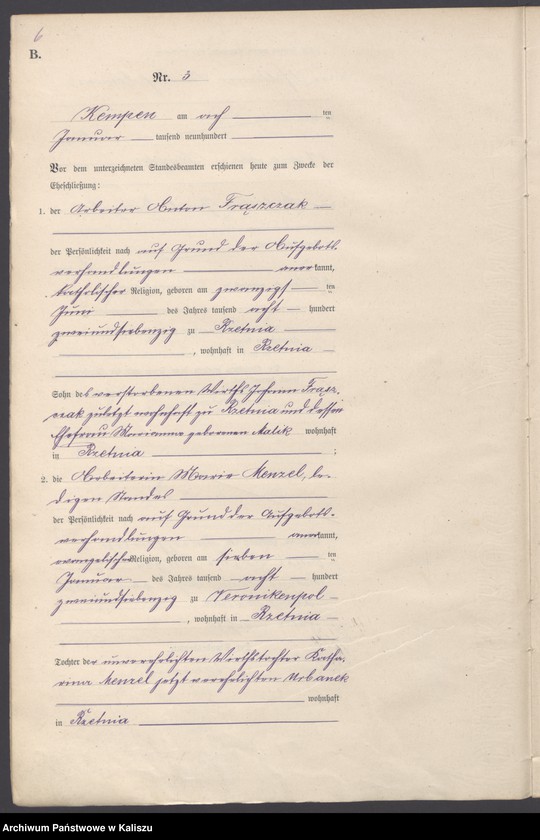 6
B.
Nr. 3
Kempen am acht ten
Januar tausend neunhundert
Vor dem unterzeichneten Standesbeamten erschienen heute zum Zwecke der
Eheschließung:
1. der Arbeiter Anton Frąszczak
der Persönlichkeit nach auf Grund der Aufgebots-
verhandlungen anerkannt,
katholischer Religion, geboren am zwanzigst ten
Juni des Jahres tausend acht hundert
zweiundsiebenzig zu Rzetnia
, wohnhaft in Rzetnia
Sohn des verstorbenen Wirths Johann Frąsz-
czak zuletzt wohnhaft zu Rzetnia und dessen
Ehefrau Marianna geborenen wohnhaft
in Rzetnia ;
2. die Arbeiterin Marie Menzel, le-
digen Standes
der Persönlichkeit nach auf Grund der Aufgebots-
verhandlungen anerkannt,
evangelischer Religion, geboren am sieben ten
Januar des Jahres tausend acht hundert
zweiundsiebenzig zu Veronikenpol
, wohnhaft in Rzetnia
Tochter der unverehelichten Wirthstochter Katha-
rina Menzel jetzt verehelichten Urbanek
wohnhaft
in Rzetnia
Archiwum Państwowe w Kaliszu